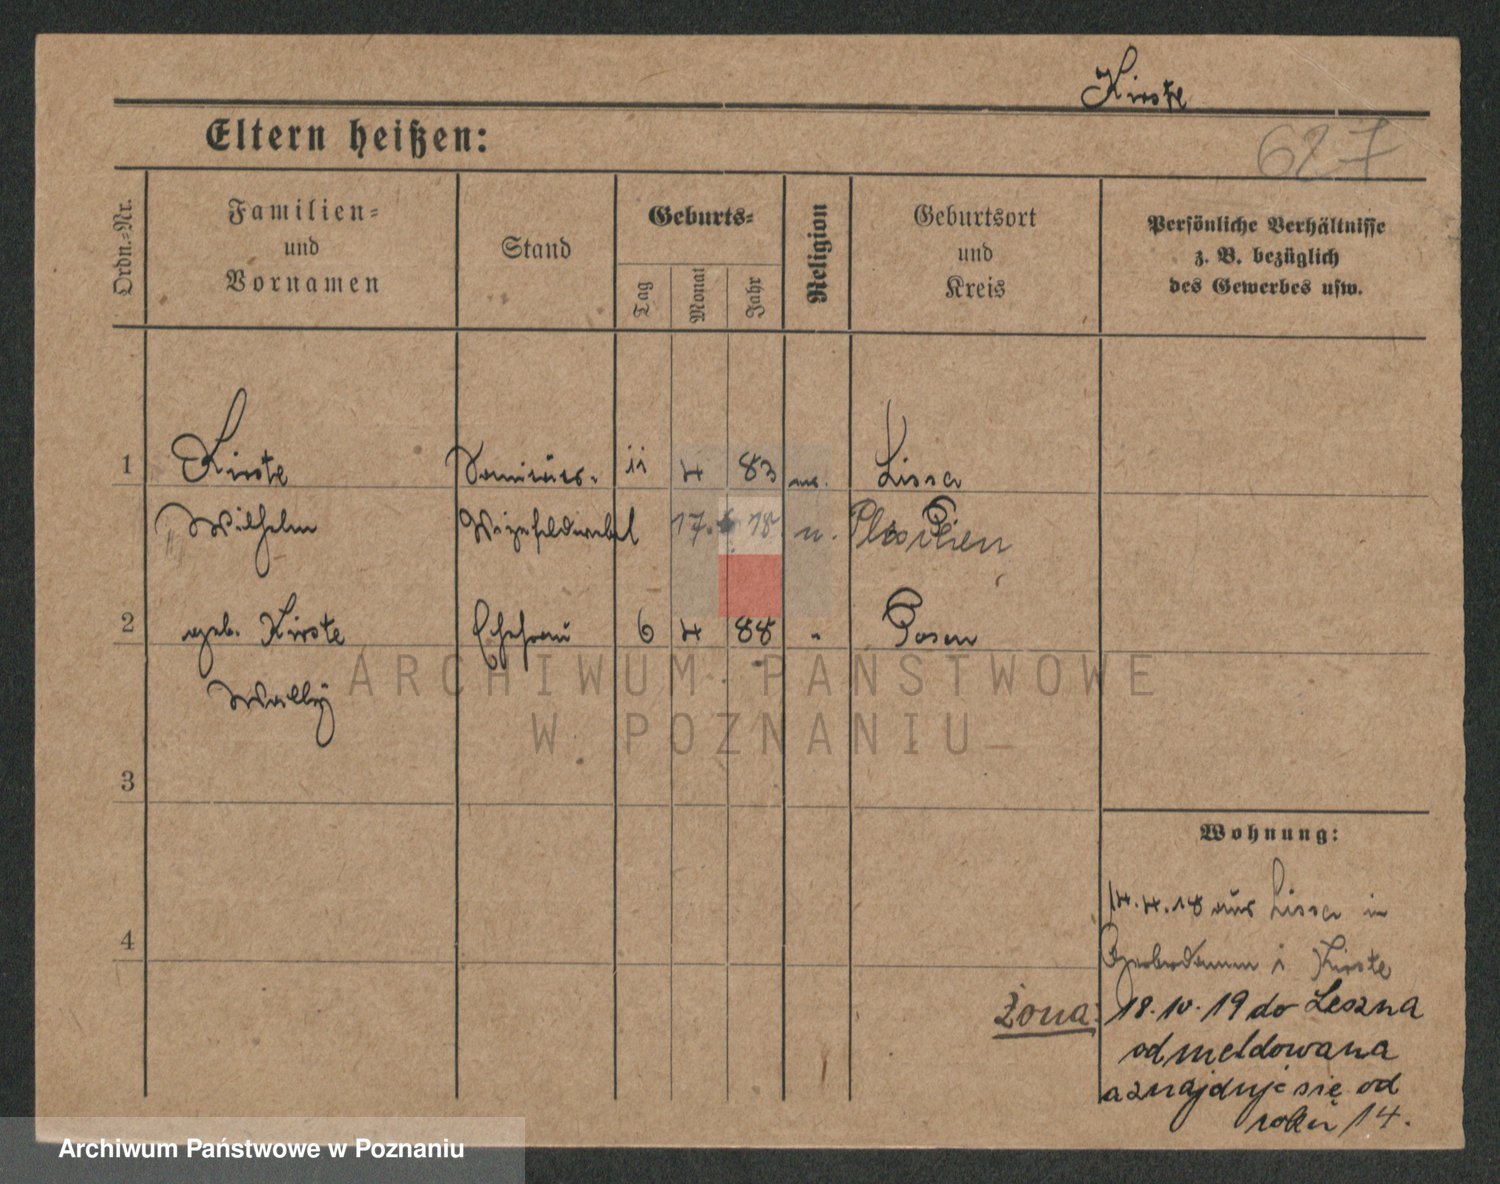 Kirste
Eltern heißen:
627
Ordn.-Nr.
Familien-
und
Vornamen
Stand
Geburts-
Tag
Monat
Jahr
Religion
Geburtsort
und
Kreis
Persönliche Verhältnisse
z. B. bezüglich
des Gewerbes usw.
1 Kirste 11 4 83 Lissa
Wilhelm Vizefeldwebel 17. 18.
2 geb. Kirste Ehefrau 6 4 88 " Posen
Wally
ARCHIWUM PAŃSTWOWE
W POZNANIU
3
Wohnung:
14.4.18 aus Lissa in
4
i Kirste
Żona: 18.IV.19 do Leszna
odmeldowana
a znajduje się od
roku 14.
Archiwum Państwowe w Poznaniu